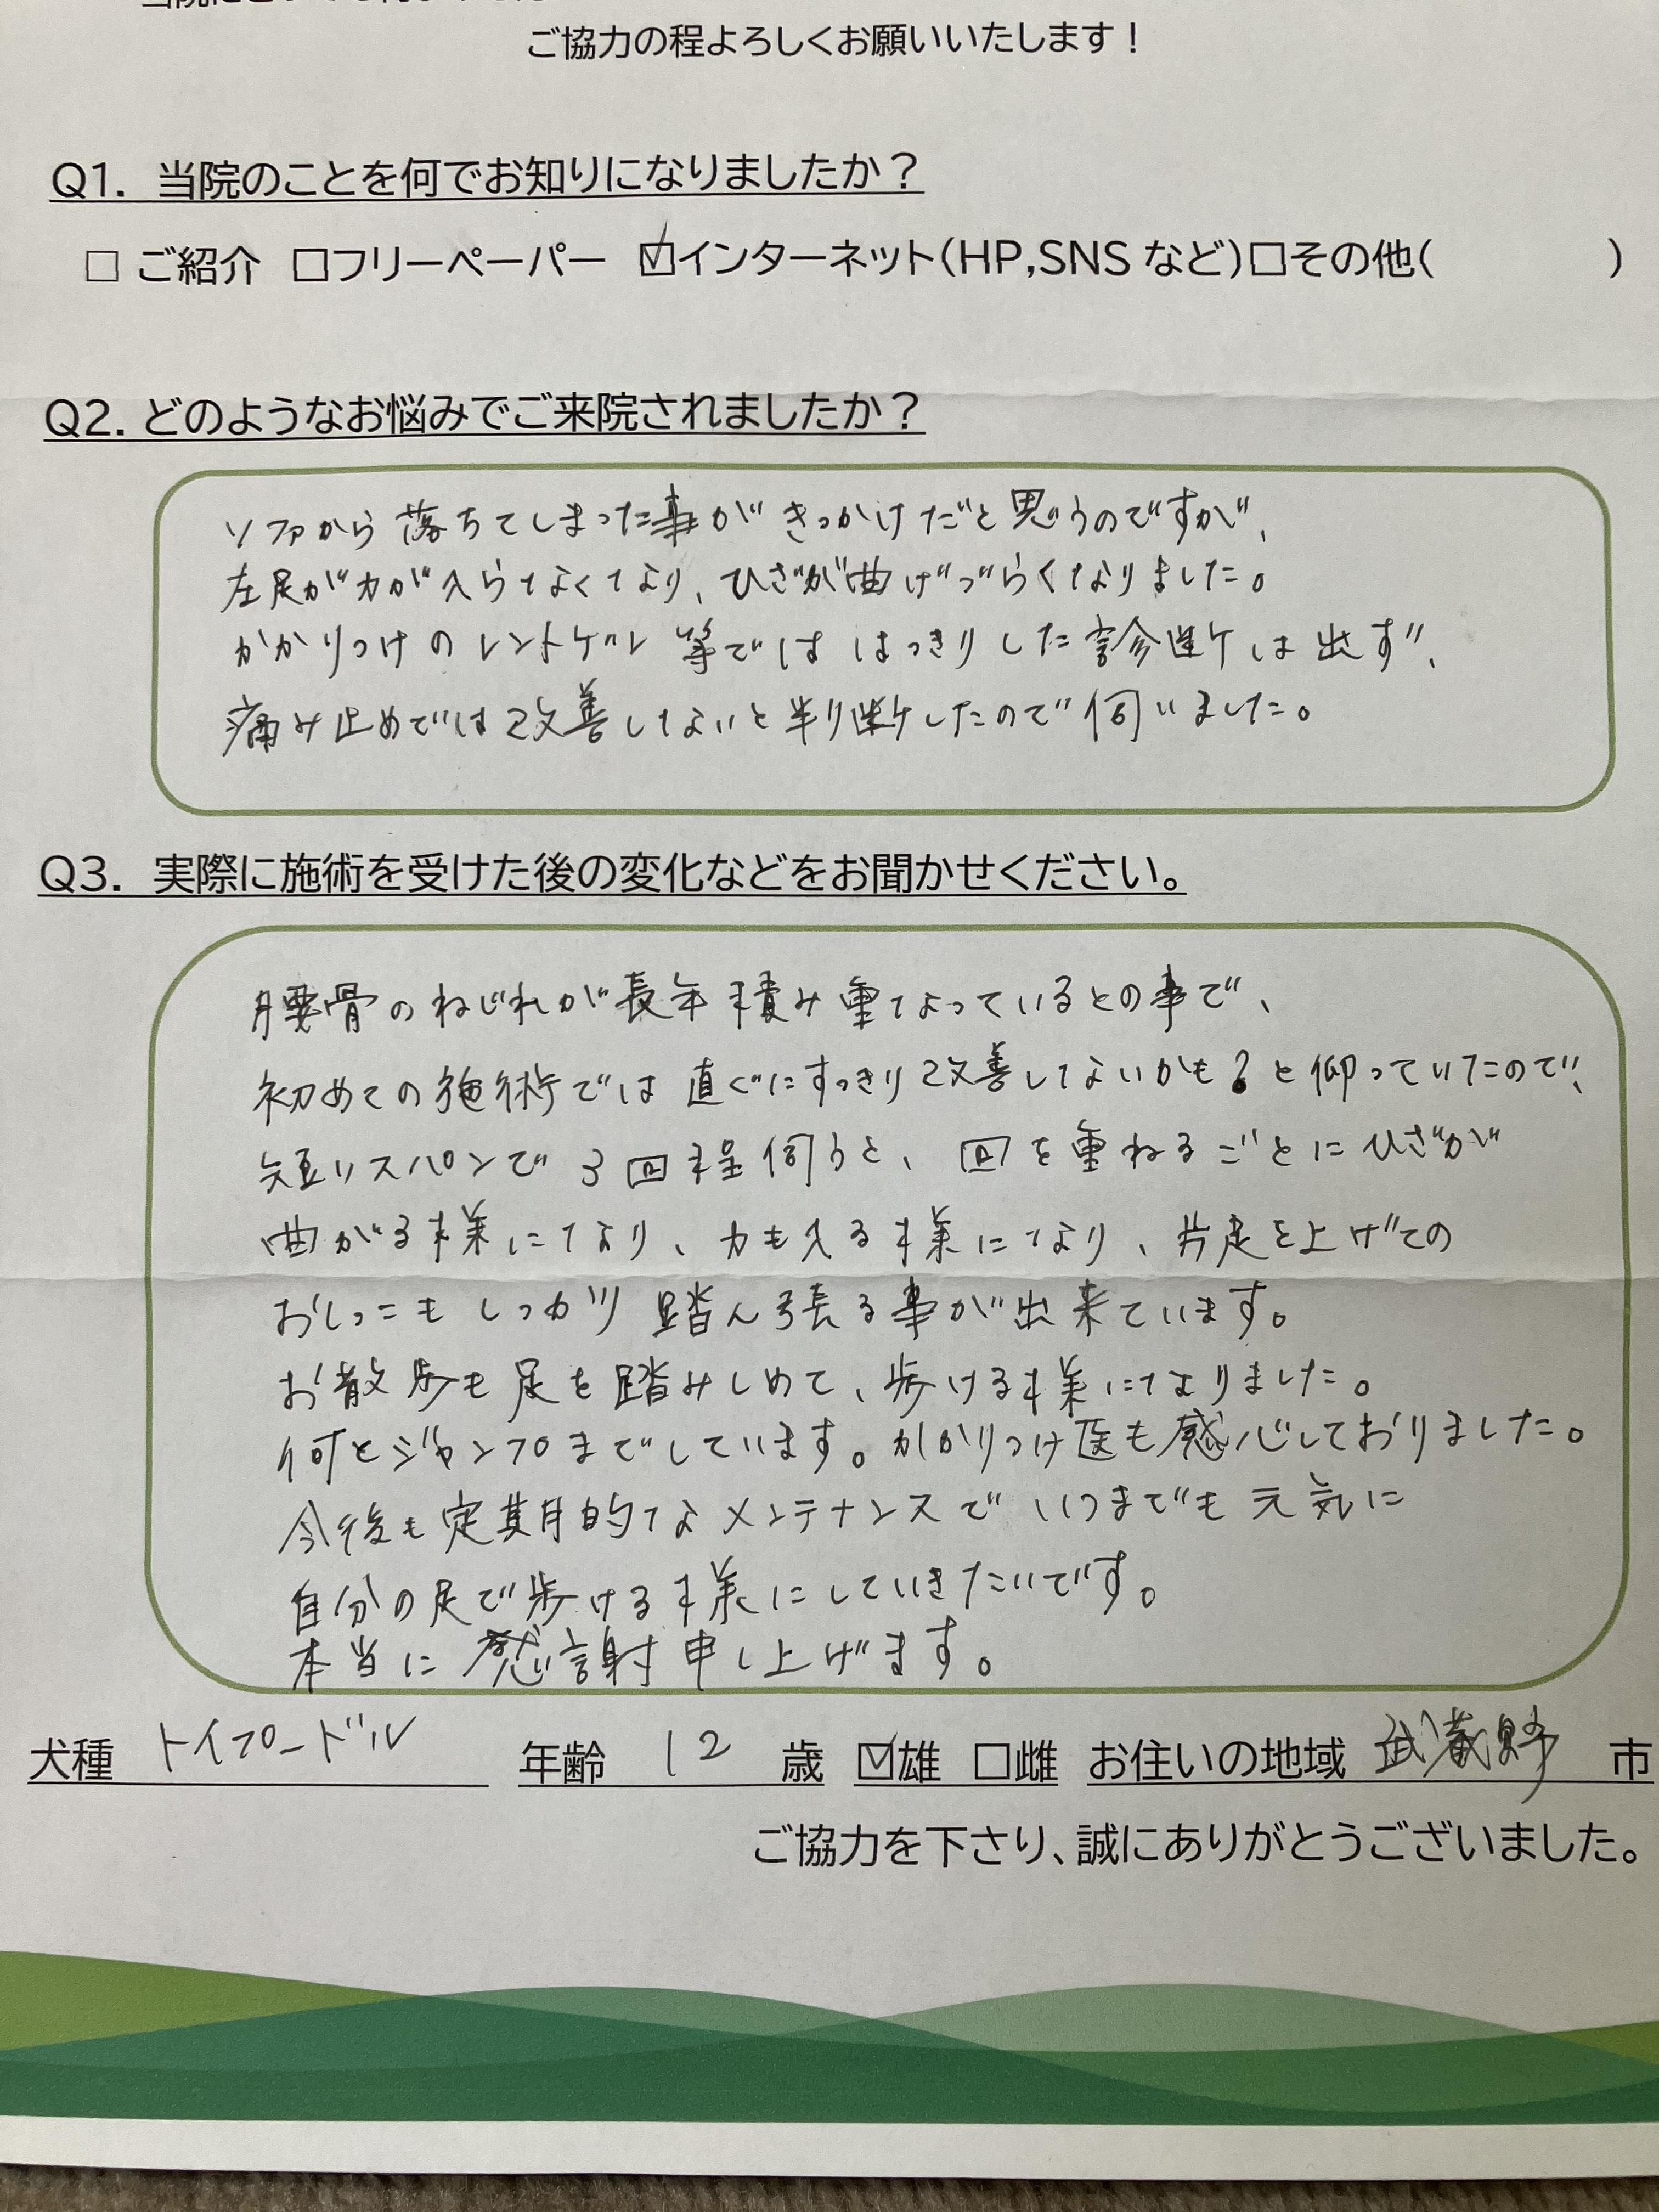 ご協力の程よろしくお願いいたします！
Q1. 当院のことを何でお知りになりましたか？
□ ご紹介 □フリーペーパー ☑インターネット(HP,SNS など)□その他( )
Q2. どのようなお悩みでご来院されましたか？
ソファから落ちてしまった事がきっかけだと思うのですが、
左足が力が入らなくなり、ひざが曲げづらくなりました。
かかりつけのレントゲン等でははっきりした診断は出ず、
痛み止めでは改善しないと判断したので伺いました。
Q3. 実際に施術を受けた後の変化などをお聞かせください。
腰骨のねじれが長年積み重なっているとの事で、
初めての施術では直ぐにすっきり改善しないかも？と仰っていたので、
短いスパンで3回程伺うと、回を重ねるごとにひざが
曲がる様になり、力も入る様になり、片足を上げての
おしっこもしっかり踏ん張る事が出来ています。
お散歩も足を踏みしめて、歩ける様になりました。
何とジャンプまでしています。かかりつけ医も感心しておりました。
今後も定期的なメンテナンスでいつまでも元気に
自分の足で歩ける様にしていきたいです。
本当に感謝申し上げます。
犬種 トイプードル 年齢 12 歳 ☑雄 □雌 お住いの地域 武蔵野 市
ご協力を下さり、誠にありがとうございました。